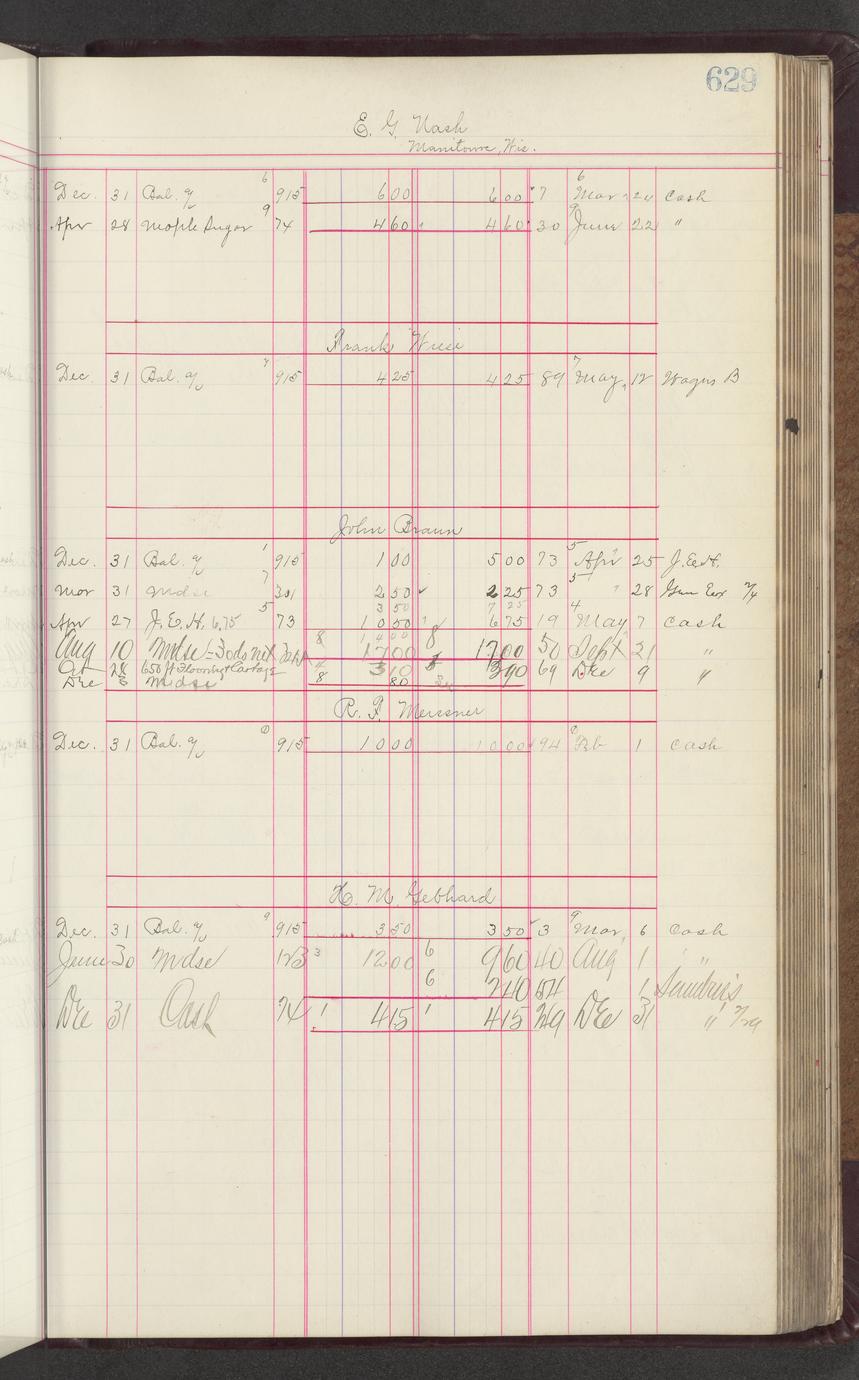 629
E. G. Nash
Manitowoc, Wis.
6 6
Dec. 31 Bal. a/c 915 6 00 6 00 7 Mar 24 Cash
9 9
Apr 28 Maple Sugar 74 4 60 4 60 30 June 22 "
Frank Wiese
7 7
Dec. 31 Bal. a/c 915 4 25 4 25 89 May 12 Wagus B
John Braun
1 5
Dec. 31 Bal. a/c 915 1 00 5 00 73 Apr 25 J.E.H.
7 5
Mar 31 Mdse 301 2 50 2 25 73 " 28
3 50 7 25
5 4
Apr 27 J.E.H. 6.75 73 10 50 6 75 19 May 7 Cash
14 00
Aug 10 Mdse - 30ds net 8 17 00 8 17 00 50 Sept 21 "
Oct 28 650 ft Flooring & Cartage 3 10 3 90 69 Dec 9 "
Dec 6 Mdse 8 80
R. F. Meissner
Dec. 31 Bal. a/c 915 10 00 10 00 94 Feb 1 Cash
H. M. Gebhard
9 9
Dec. 31 Bal. a/c 915 3 50 3 50 3 Mar 6 Cash
June 30 Mdse 123 3 12 00 6 9 60 40 Aug 1 "
6 2 40 54 1 Sundries
Dec 31 Cash 74 1 4 15 1 4 15 249 Dec 31 "